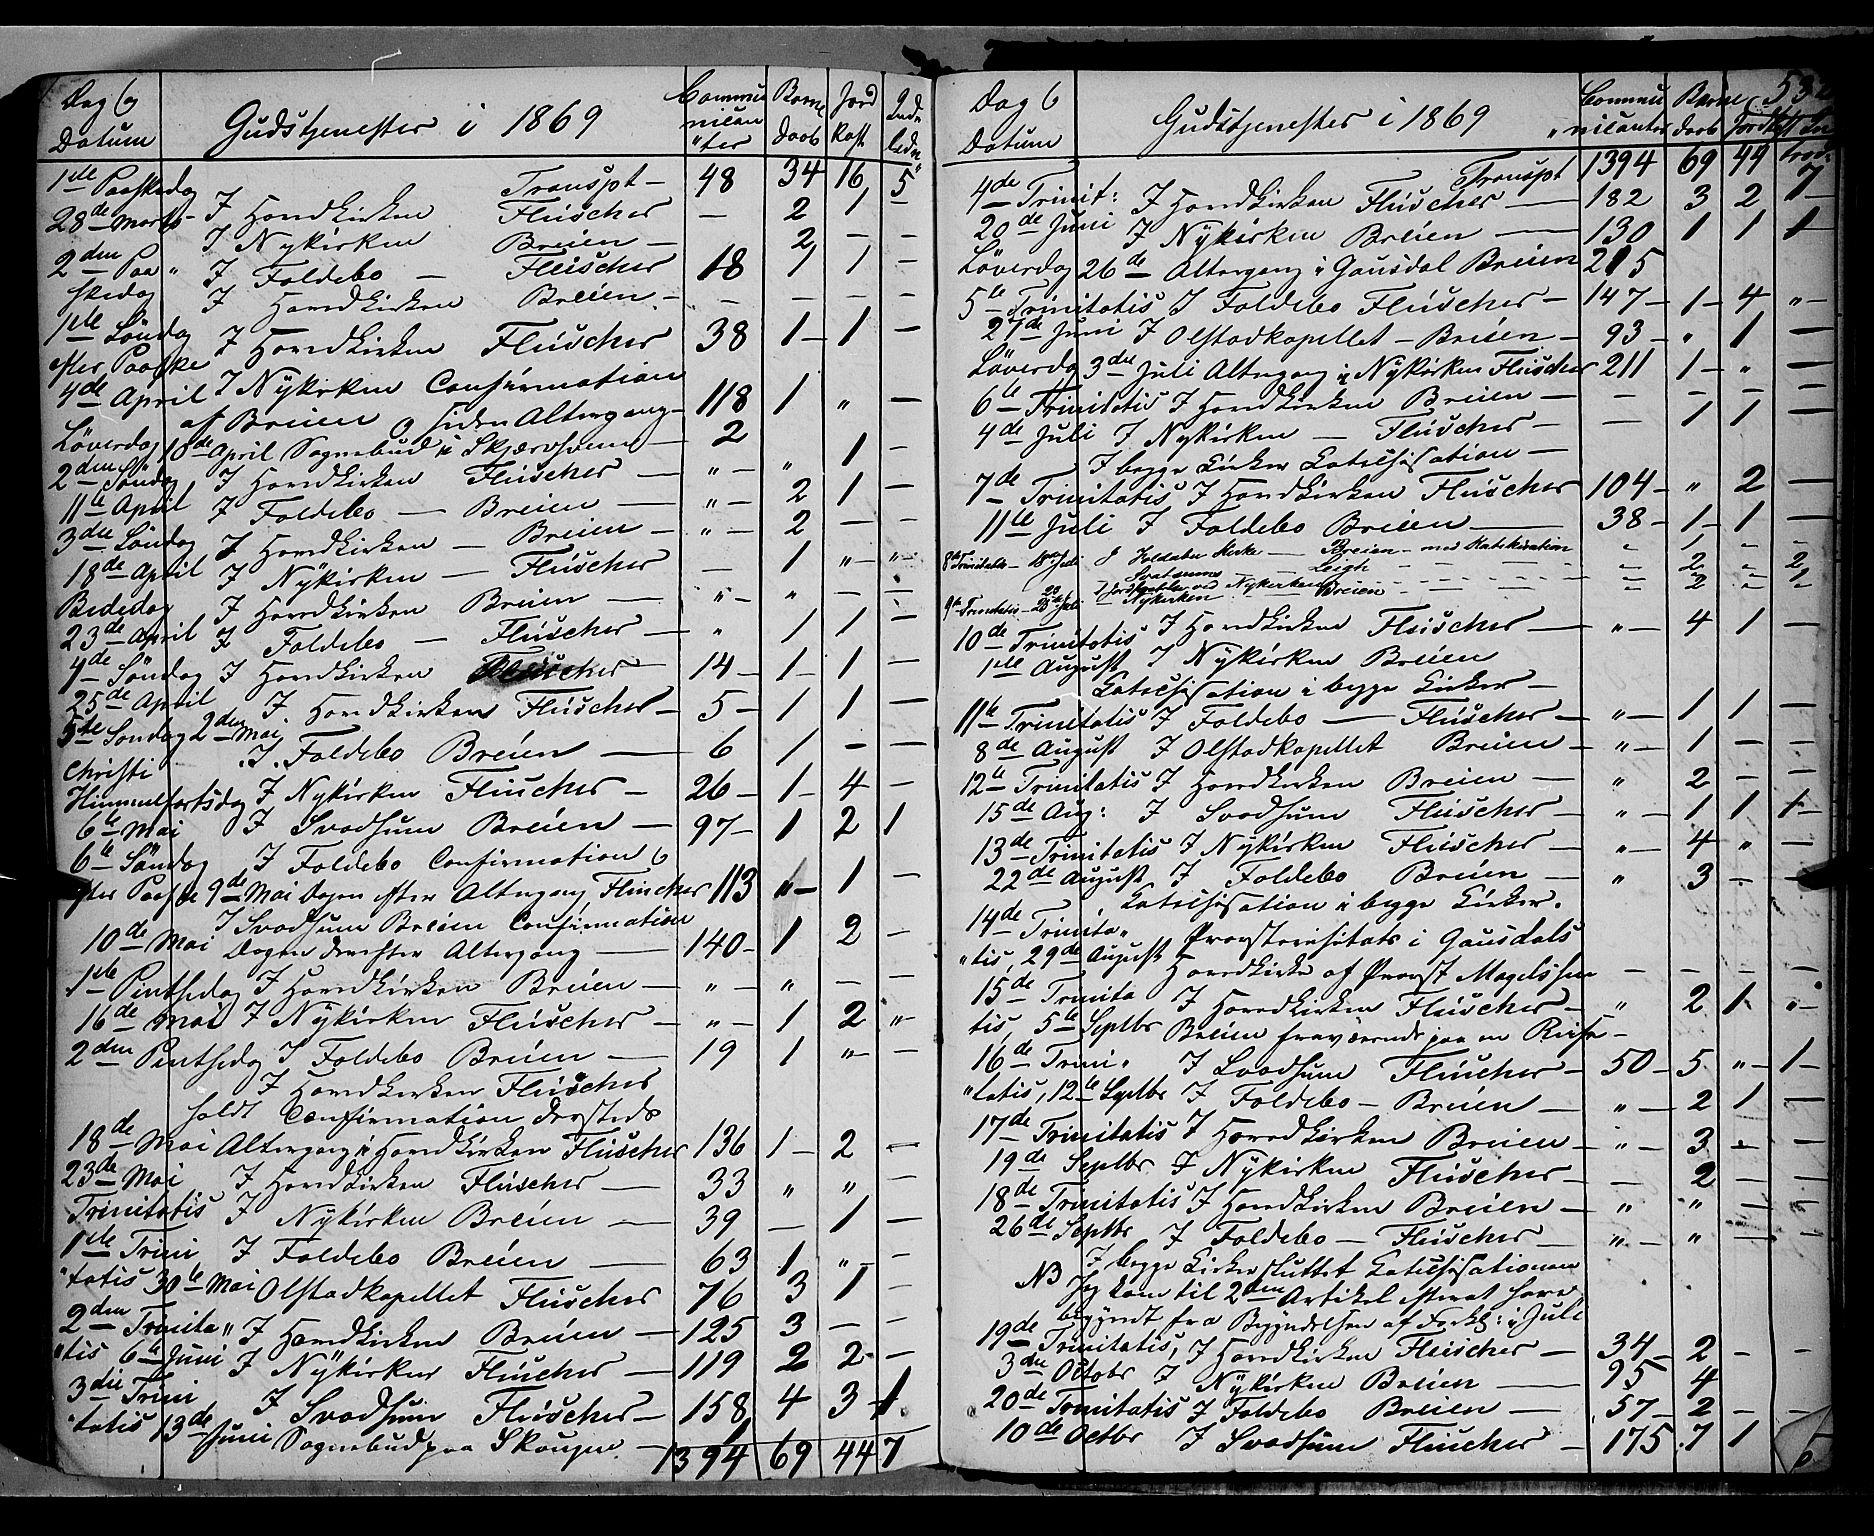 Dag og Datum
Gudstjenester i 1869
Commu nican ter
Barne Daab
Jord kast
Ind ledn
1ste Paaskedag Transpt - 48 34 16 5
28de Marts - I Hovedkirken Fleischer - 2 1 -
I Nykirken Breien - 2 - -
2den Paa " I Foldebo - Fleischer 18 1 1 -
skedag I Hovedkirken Breien - - - - -
1ste Søndag I Hovedkirken Fleischer 38 1 - 1 -
efter Paaske
4de April I Nykirken Confirmation
af Breien og siden Altergang - 118 1 " -
Løverdag 10de April Sognebud i Skjærdsum - 2 1 -
2den Søndag I Hovedkirken Fleischer - " - " 1 -
11te April I Foldebo - Breien - " - 2 1 -
3die Søndag I Hovedkirken - Breien - " - 2 - -
18de April I Nykirken - Fleischer - - 1 " - "
Bededag I Hovedkirken Breien - " - " - -
23de April I Foldebo - Fleischer - " 1 1 -
4de Søndag I Hovedkirken Fleischer - 14 - 1 - 1 -
25de April I Hovedkirken Fleischer - 5 - 1 1 -
5te Søndag 2den Mai
I Foldebo Breien - 6 1 - -
Christi
Himmelfartsdag I Nykirken Fleischer - 26 - 1 - 4 -
6te Mai I Svadsum Breien - 97 - 1 2 1
6te Søndag I Foldebo Confirmation og
efter Paaske 9de Mai Dagen efter Altergang, Fleischer 113 " - 1 -
I Svadsum Breien Confirmation
10de Mai Dagen derefter Altergang - 140 - 1 2 -
1ste Pintsedag I Hovedkirken Breien - " - " - -
16de Mai I Nykirken Fleischer - " - 1 2 "
2den Pintsedag I Foldebo Breien - 19 1 " - -
I Hovedkirken Fleischer
holdt Confirmation dersteds
18de Mai Altergang i Hovedkirken Fleischer 136 1 - 2 -
23de Mai I Hovedkirken Fleischer - 33 " " -
Trinitatis I Nykirken Breien - 39 - 1 -
1ste Trini I Foldebo Breien - 63 1 " -
"tatis 30te Mai Olstadkapellet Fleischer 76 3 1 -
2den Trinita " I Hovedkirken Breien - 125 3 - -
"tis 6te Juni I Nykirken Fleischer - 119 2 2 -
3die Trini I Svadsum Fleischer - 158 4 3 1
"tatis 13de Juni Sognebud paa Skougen - 1
1394 69 44 7
Dag og Datum
Gudstjenester i 1869
Commu nicanter
Barne daab
Jordkast
532
Transpt 1394 69 44 7
4de Trinit: I Hovedkirken Fleischer - 182 3 2 -
20de Juni I Nykirken Breien - 130 1 1 1
Løverdag 26de Altergang i Gausdal Breien 215
5te Trinitatis I Foldebo Fleischer - 147 - 1 - 4 "
27de Juni I Olstadkapellet - Breien - 93 - " 1 -
Løverdag 3die Juli Altergang i Nykirken Fleischer 211 1 - " -
6te Trinitatis I Hovedkirken Breien - - - - -
4de Juli I Nykirken - Fleischer - - 1 1 -
I begge Kirker Catechisation -
7de Trinitatis I Hovedkirken Fleischer 104 - " 2 -
11te Juli I Foldebo Breien - 38 - 1 - 1 -
8de Trinitatis - 18de Juli I Foldebo Kirke - Breien - med Katekisation " 1 - -
Svatsum - Leigh - " 2 - 2
Jordfæstelse ved Nykirken
9de Trinitatis - 25de Juli Nykirken Breien - " 2 - 1
10de Trinitatis I Hovedkirken Fleischer - " - 4 1 -
1ste August I Nykirken Breien
Catechisation i begge Kirker -
11te Trinitatis I Foldebo - Fleischer - " - 1 1 -
8de August I Olstadkapellet Breien - " - 1 - -
12te Trinitatis I Hovedkirken Breien - " 2 - -
15de Aug: I Svadsum Fleischer - " - 1 1 1
13de Trinitatis I Nykirken Fleischer - " - 4 " -
22de August I Foldebo Breien - " 3 - -
Catechisation i begge Kirker.
14de Trinita " Provstevisitats i Gausdals
"tis, 29de August Hovedkirke af Provst Magelssen - - - -
15de Trinita I Hovedkirken Fleischer - " 2 1 "
tis, 5te Septbr Breien fraværende paa en Reise -
16de Trini " I Svadsum Fleischer - 50 - 5 " - 1
"tatis, 12te Septbr I Foldebo - Breien - " - 2 1 -
17de Trinitatis I Hovedkirken Breien - " - 3 - -
19de Septbr I Nykirken Fleischer - - 2 - -
18de Trinitatis I Hovedkirken Breien - " " - -
26de Septbr I Foldebo - Fleischer - " - " - -
I begge Kirker sluttet Catechisationen
NB Jeg kom til 2den Artikel efterat have
begyndt fra Begyndelsen af Forkl: i Juli
19de Trinitatis, I Hovedkirken Fleischer - 34 - 2 - -
3die Octobr I Nykirken Breien - 95 4
20de Trinitatis I Foldebo Breien - 57 - 2 - -
10de Octbr I Svadsum Fleischer - 175 7 1